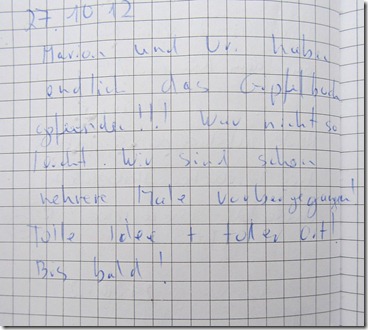 27.10.12
Marion und Ur. haben
endlich das Gipfelbuch
gefunden!!! War nicht so
leicht. Wir sind schon
mehrere Male vorbeigegangen!
Tolle Idee + toller Ort!
Bis bald!